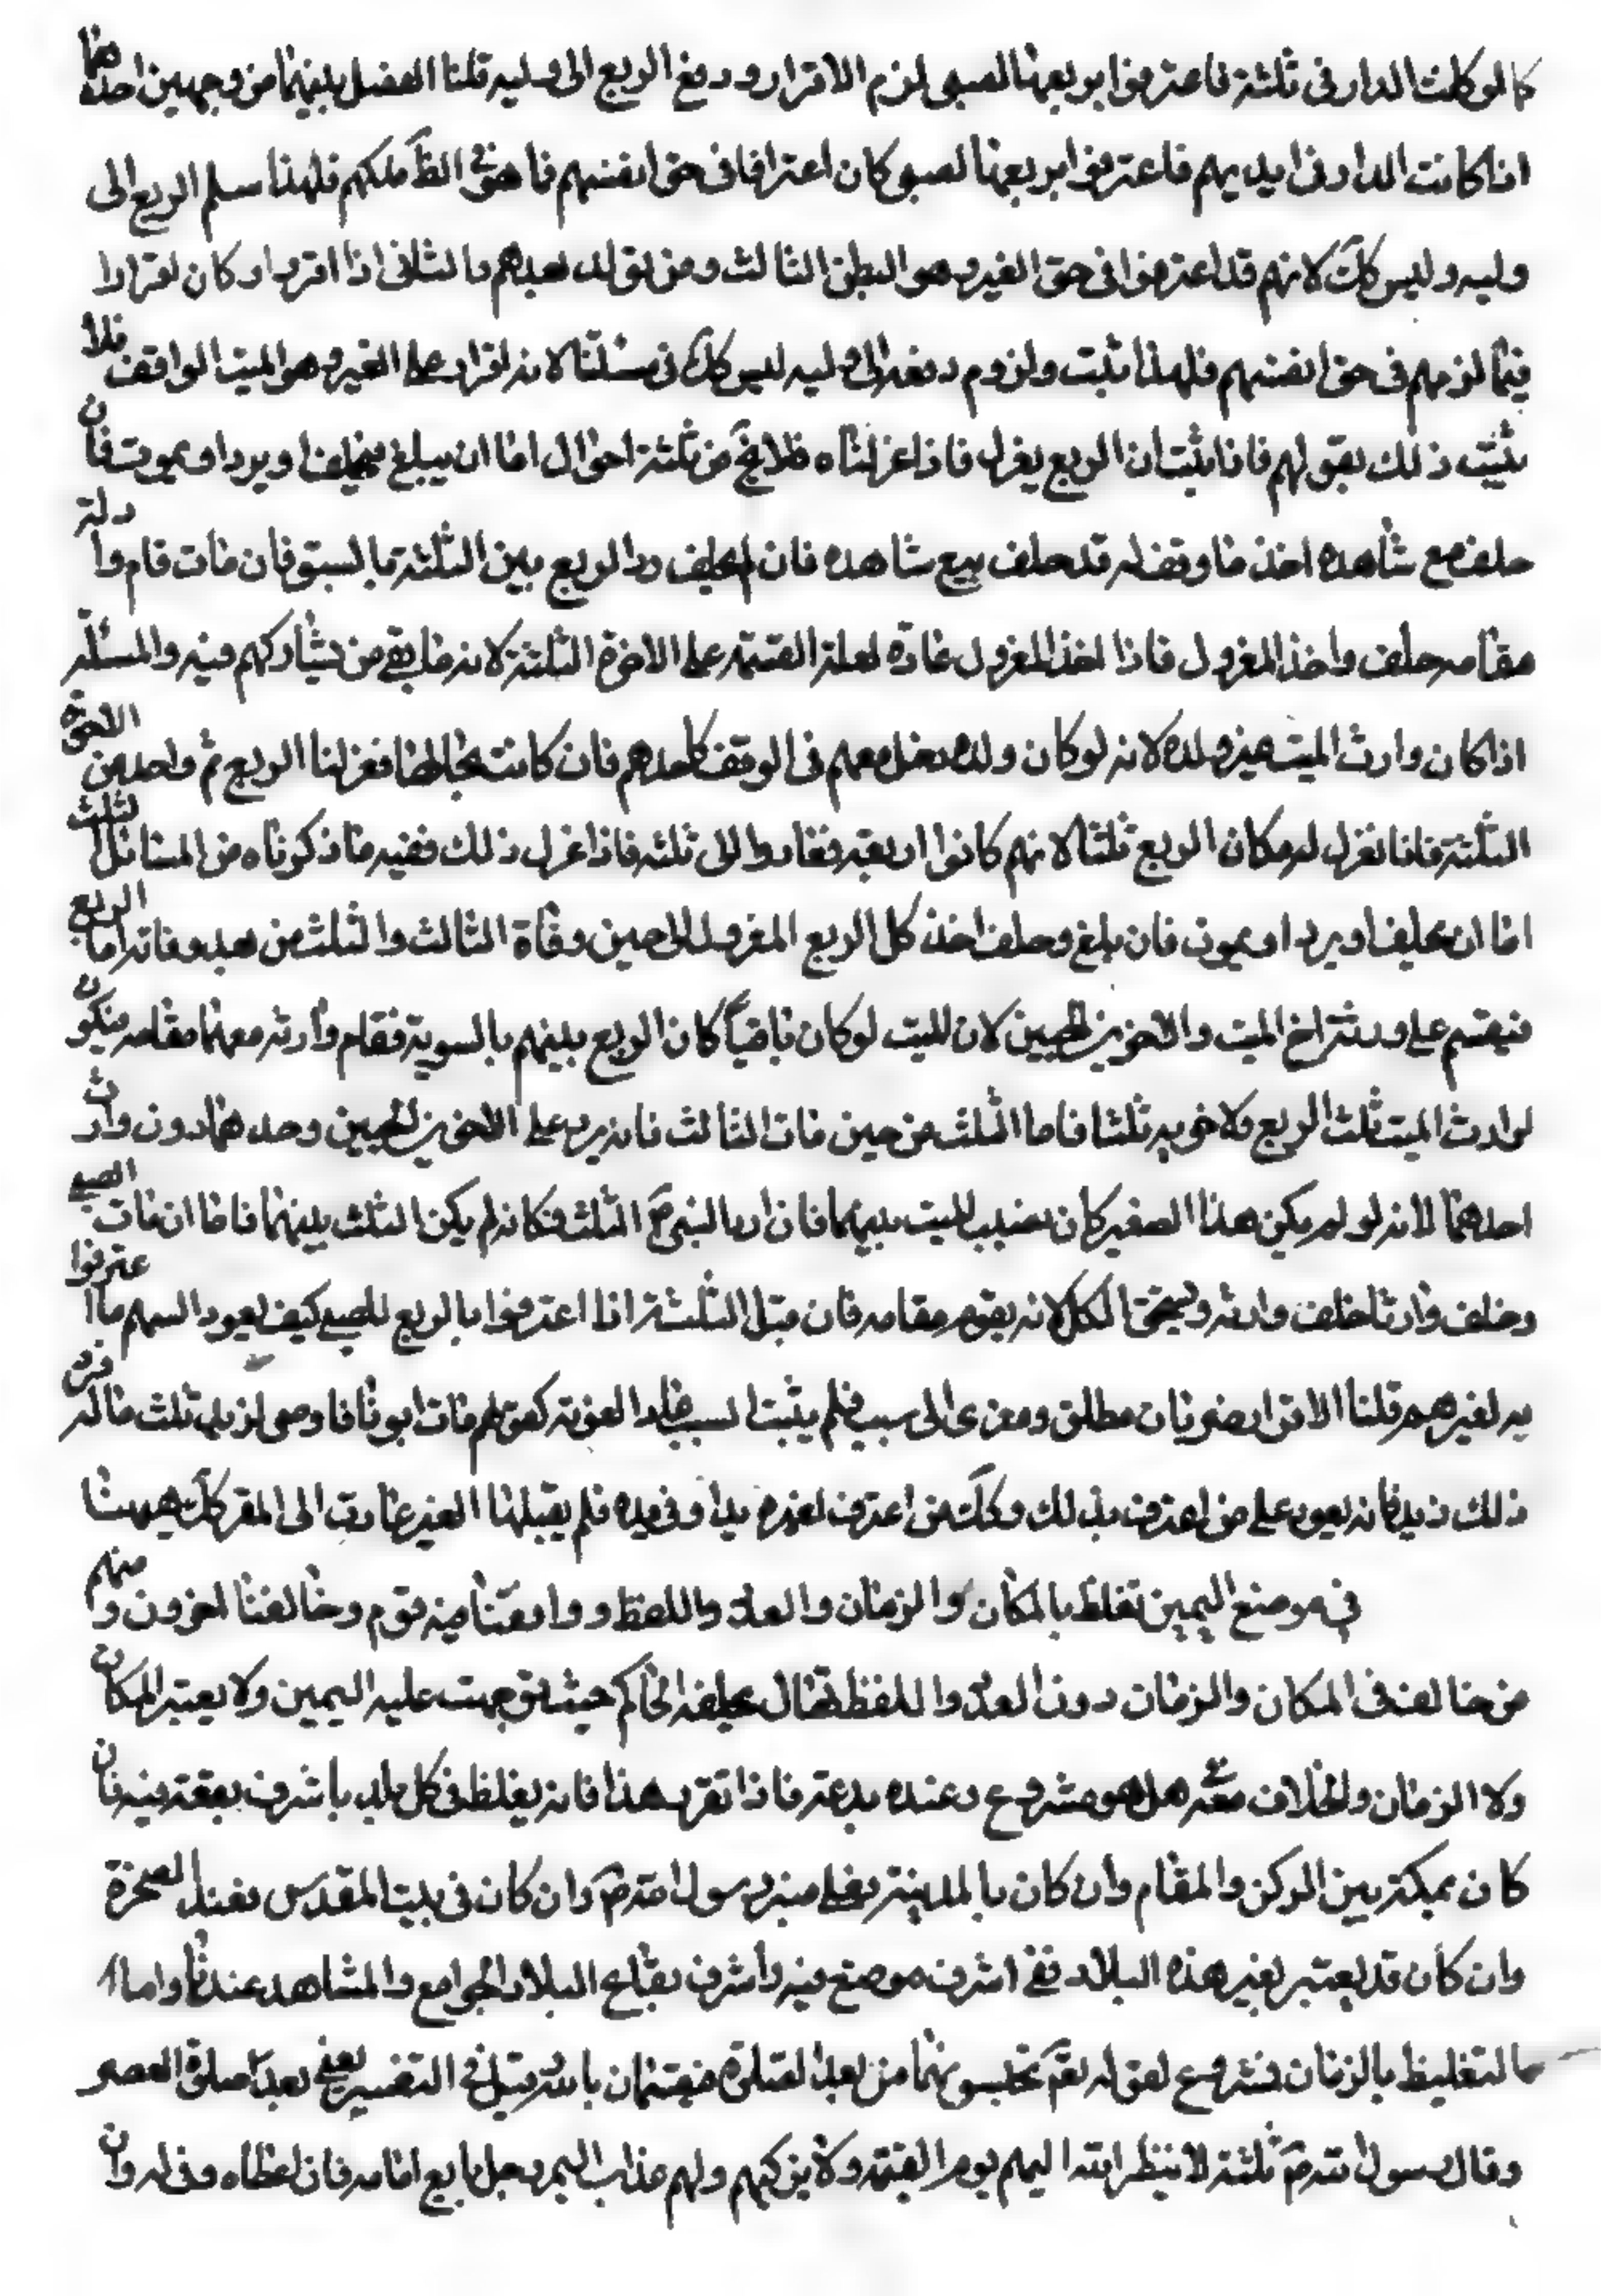 كما لو كانت الدار في ثلثة فاعترفوا بربعها لصبي لزم الاقرار ودفع الربع الى وليه قلنا الفصل بينهما من وجهين احدهما
اذا كانت الدار في ايديهم فاعترفوا بربعها لصبي كان اعترافا في حق انفسهم فاهو في الظ ملكهم فلهذا سلم الربع الى
وليه وليس كك لانهم قد اعترفوا في حق الغير وهو البطن الثالث ومن بعدهم والثاني اذا اقروا وكان اقرارا
فيما لزمهم في حق انفسهم فلهذا ثبت ولزوم دفعه الى وليه ليس كك في مسئلتنا لانه اقرار على الغير وهو الميت الواقف فلا
يثبت ذلك بقولهم فاذا ثبت ان الربع يعزل فاذا عزلناه فلا يخ من ثلثة احوال اما ان يبلغ فيحلف او يرد او يموت فان
حلف مع شاهده اخذ ما وقف له قد حلف مع شاهده فان لم يحلف رد الربع بين الثلثة بالسبق فان مات قام وا دلته
مقامه حلف واخذ المعزول فاذا اخذ المعزول عادة لعلة القسمة على الاخوة الثلثة لانه ما بقي من يشاركهم فيه والمسئلة
اذا كان وارث الميت غير ولده لانه لو كان ولده دخل معهم في الوقف كاحدهم فان كانت بحالها فعزلنا الربع ثم واحد من الاخوة
الثلثة فانا نعزل له مكان الربع ثلثا لانهم كانوا اربعة فعادوا الى ثلثة فاذا عزل ذلك ففيه ما ذكرناه من المسائل الثلث
اما ان يحلف او يرد او يموت فان بلغ وحلف اخذ كل الربع المعزول الى حين وفاة الثالث والثلث من بعد وفاته اما الربع
فيقسم على ورثة اخ الميت والاخوين الحيين لان الميت لو كان باقيا كان الربع بينهم بالسوية فقام وارثه معهما مقامه فيكون
لوارث الميت ثلث الربع ولاخويه ثلثا فاما الثلث من حين مات الثالث فانه يرد على الاخوين الحيين وحدهما دون وارث
احدهما لانه لو لم يكن هذا الصغير كان نصيب الميت بينهما فان رد الثلث فكانه لم يكن الثلث بينهما فاما ان مات الصبي
وخلف وارثا حلف وارثه ويستحق الكل لانه يقوم مقامه فان قيل الثلثة اذا اعترفوا بالربع للصبي كيف يعود السهم ما اعترفوا
به لغيرهم قلنا الاقرار ضربان مطلق ومعزى الى سبب فلم يثبت السبب عاد كقولهم مات ابونا فاوصى لزيد ثلث ماله فرد
ذلك زيد فانه يعود على من اعترف بذلك وكك من اعترف لغيره بدار في يده فلم يقبلها الغير عادت الى المقر كك هيهنا
في موضع اليمين تغلظ بالمكان والزمان والعدد واللفظ ووافقنا فيه قوم وخالفنا اخرون ومنهم
من خالف في المكان والزمان دون العدد واللفظ فقال يحلفه الحاكم حيث توجهت عليه اليمين ولا يعتبر المكان
ولا الزمان والخلاف معه هل هو مشروع وعنده بدعة فاذا تقرر هذا فانه يغلظ في كل بلد باشرف بقعة فيه فان
كان بمكة بين الركن والمقام وان كان بالمدينة فعلى منبر رسول الله ص وان كان في بيت المقدس فعند الصخرة
وان كان قد يعتبر بغير هذه البلاد ففي اشرف موضع فيه واشرف بقاع البلاد الجوامع والمشاهد عندنا واما ا
ما لتغليظ بالزمان فمشروع لقوله تعم تحبسونهما من بعد الصلوة فيقسمان بالله قيل في التفسير يعني بعد صلوة العصر
وقال رسول الله ص ثلثة لا ينظر الله اليهم يوم القيمة ولا يزكيهم ولهم عذاب اليم رجل بايع امامه فان اعطاه وفى له وان